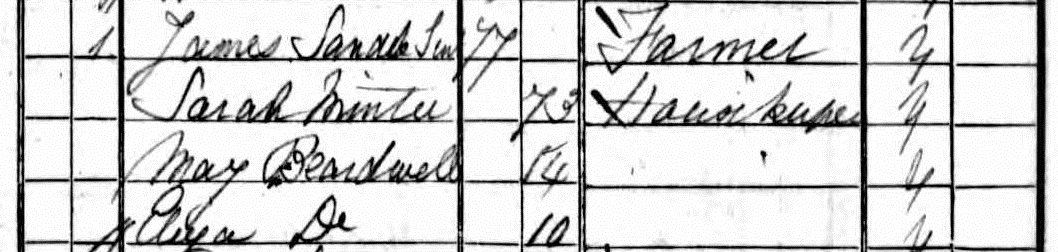 1 James Sandle Sen 77 Farmer y
Sarah Minter 73 Housekeeper y
May Beardwell 14 y
Eliza Do 10 y